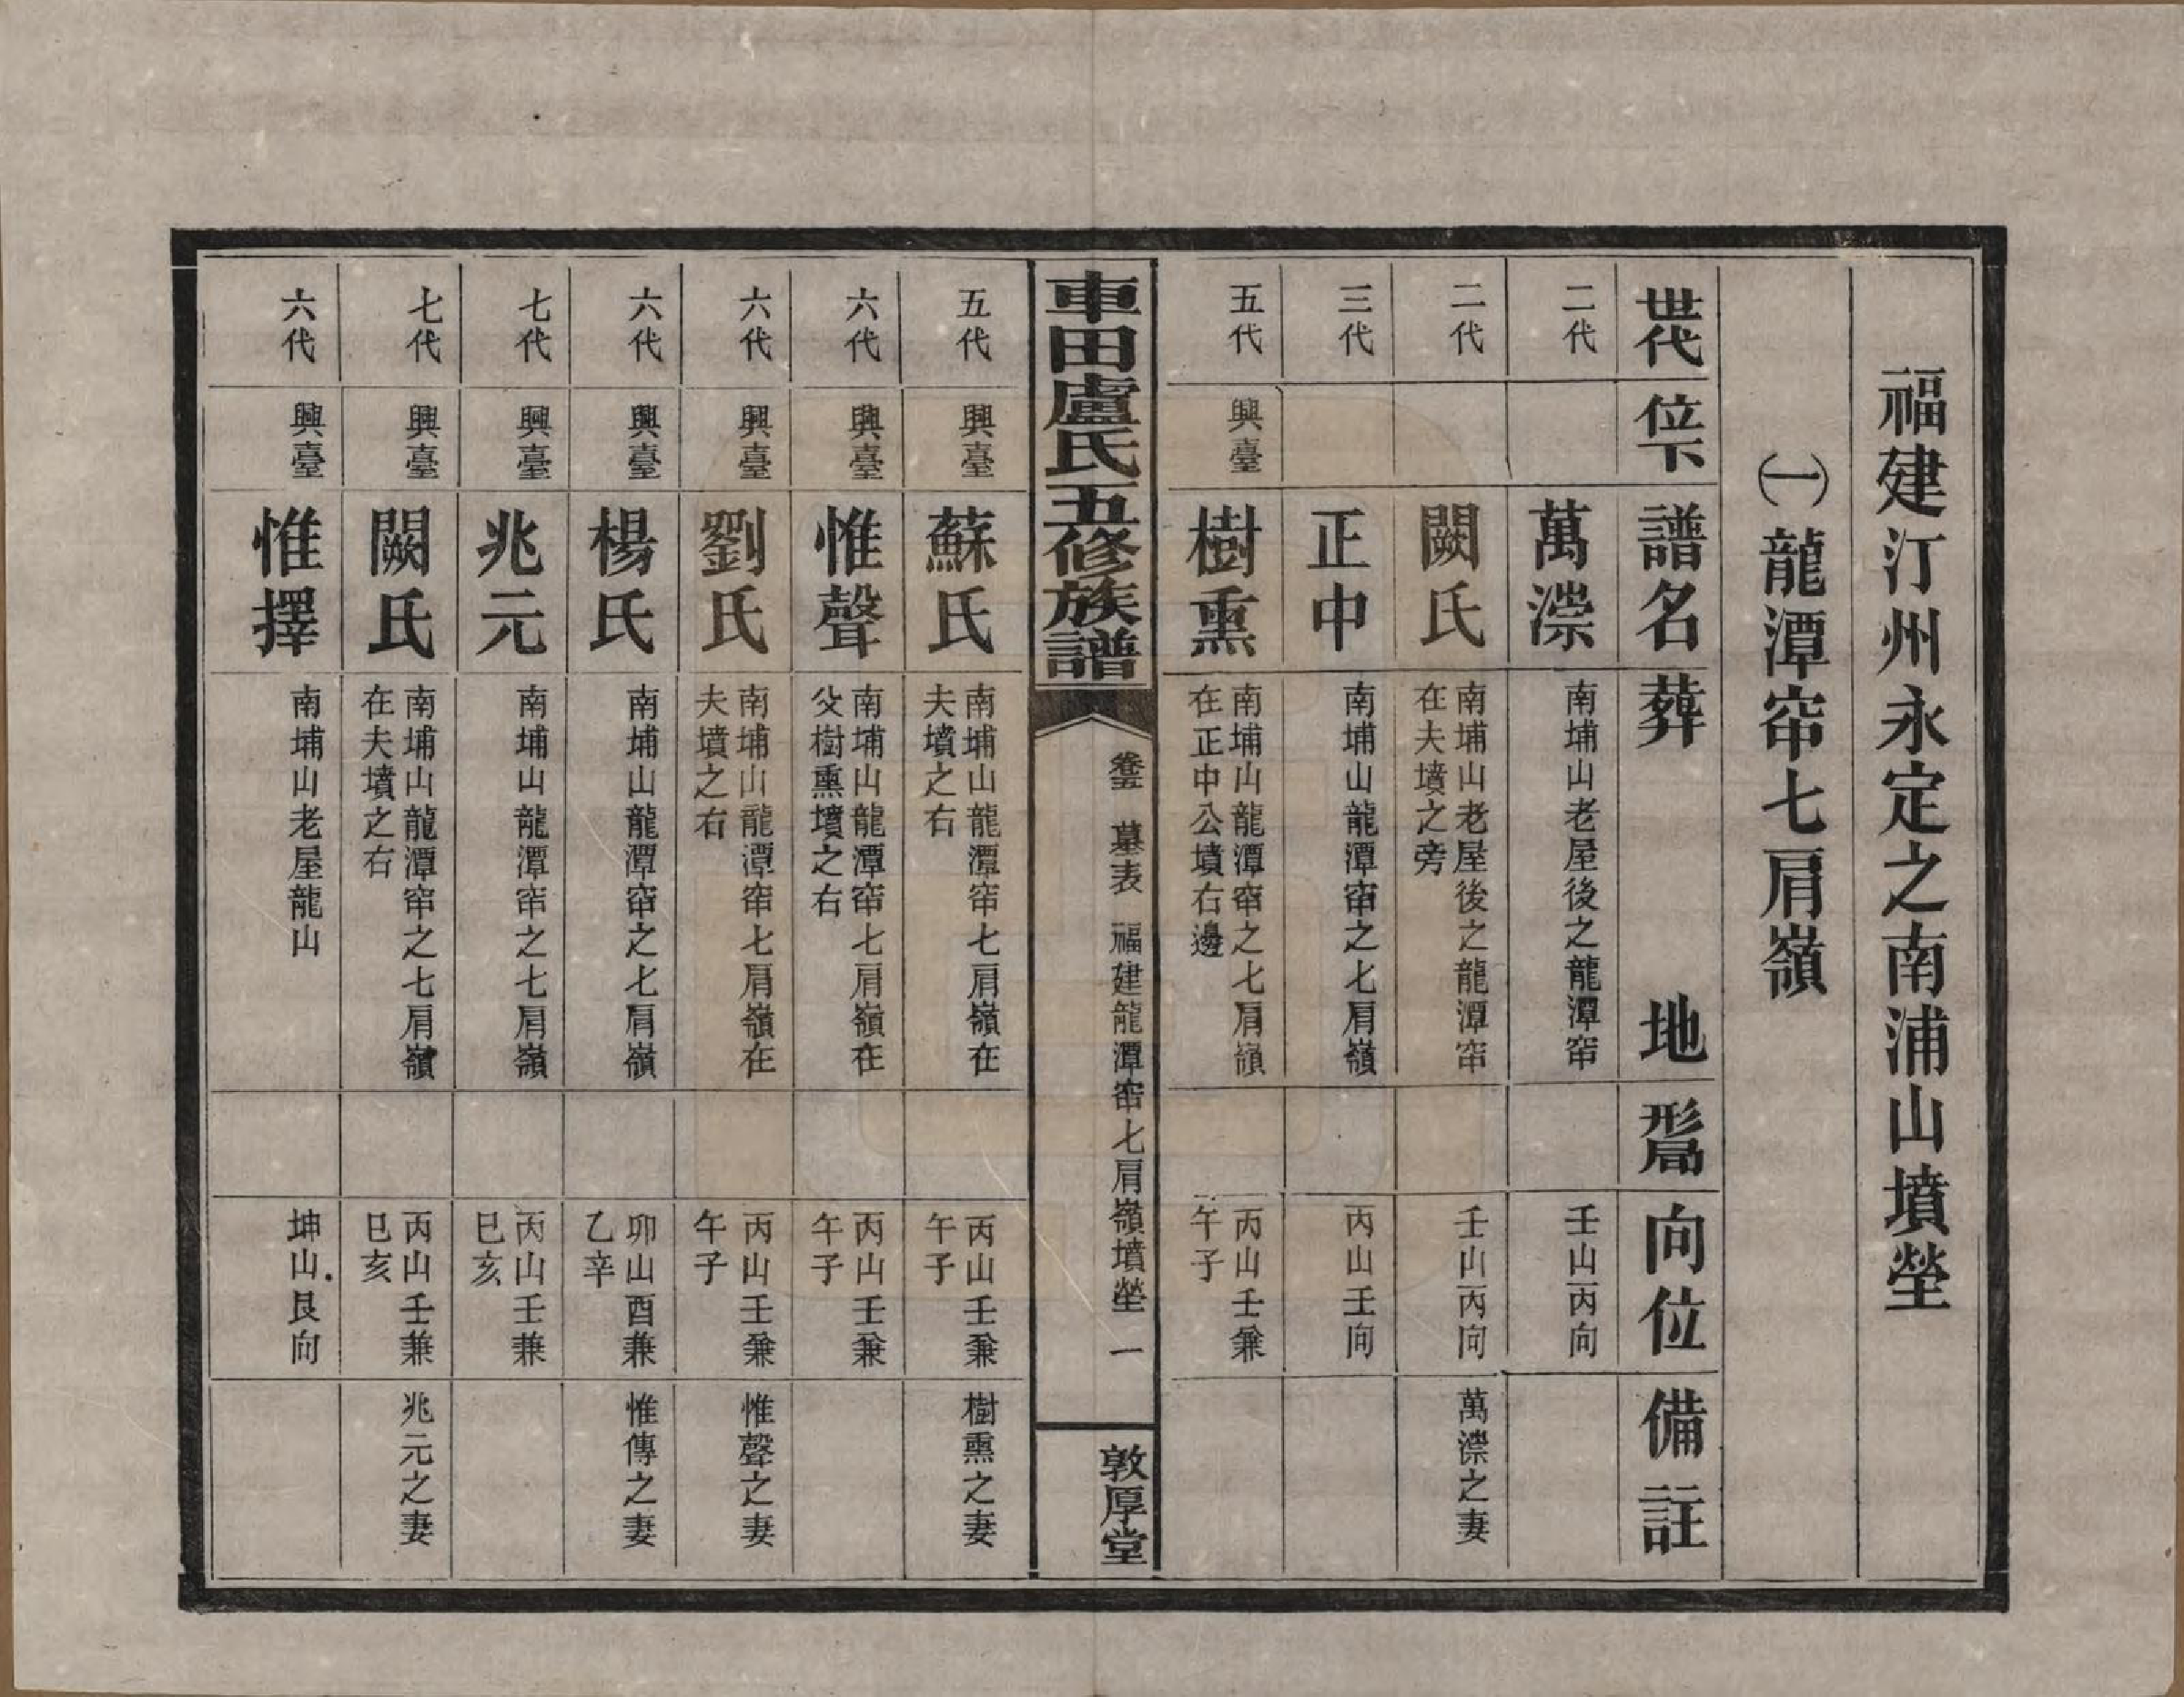 福建汀州永定之南浦山墳塋
㈠龍潭窂七肩嶺
世代 位下 譜名 葬地 形局 向位 備註
二代 萬漴 南埔山老屋後之龍潭窂 壬山丙向
二代 闕氏 南埔山老屋後之龍潭窂在夫墳之旁 壬山丙向 萬漴之妻
三代 正中 南埔山龍潭窂之七肩嶺 丙山壬向
五代 興臺 樹熏 南埔山龍潭窂之七肩嶺在正中公墳右邊 丙山壬兼午子
車田盧氏五修族譜 卷五 墓表 福建龍潭窂七肩嶺墳塋 一 敦厚堂
五代 興臺 蘇氏 南埔山龍潭窂七肩嶺在夫墳之右 丙山壬兼午子 樹熏之妻
六代 興臺 惟聲 南埔山龍潭窂七肩嶺在父樹熏墳之右 丙山壬兼午子
六代 興臺 劉氏 南埔山龍潭窂七肩嶺在夫墳之右 丙山壬兼午子 惟聲之妻
六代 興臺 楊氏 南埔山龍潭窂之七肩嶺 卯山酉兼乙辛 惟傳之妻
七代 興臺 兆元 南埔山龍潭窂之七肩嶺 丙山壬兼巳亥
七代 興臺 闕氏 南埔山龍潭窂之七肩嶺在夫墳之右 丙山壬兼巳亥 兆元之妻
六代 興臺 惟擇 南埔山老屋龍山 坤山艮向